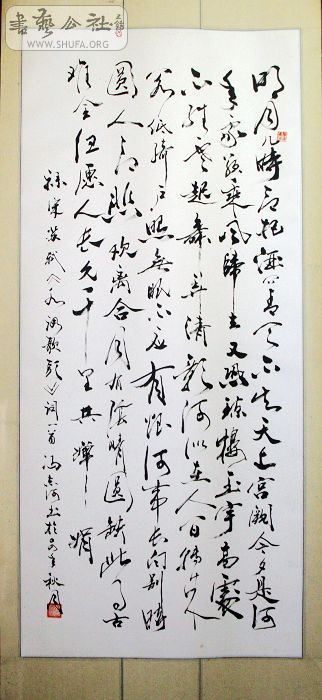 書藝公社
WWW.SHUFA.ORG
明月几時有把酒問青天不知天上宮闕今夕是何
年我欲乘風歸去又恐瓊樓玉宇高處
不勝寒起舞弄清影何似在人间轉朱
閣低綺户照無眠不应有恨何事长向别時
圓人有悲欢离合月有陰晴圓缺此事古
难全但愿人长久千里共嬋娟
録宋蘇軾《水調歌頭》词一首冯河书於年秋月